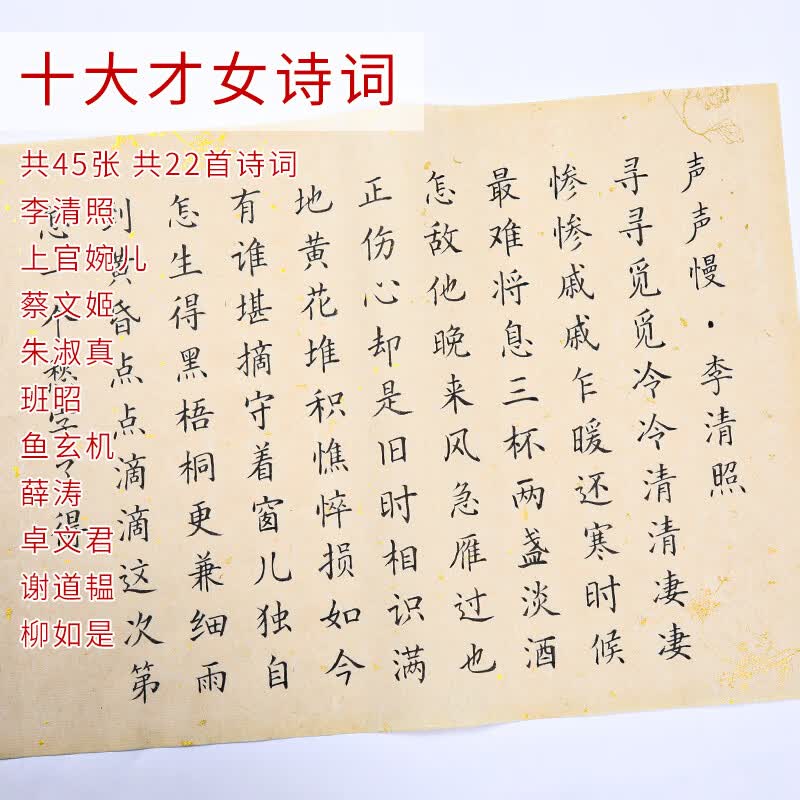 十大才女诗词
共45张 共22首诗词
李清照
上官婉儿
蔡文姬
朱淑真
班昭
鱼玄机
薛涛
卓文君
谢道韫
柳如是
声声慢·李清照
寻寻觅觅冷冷清清凄凄
惨惨戚戚乍暖还寒时候
最难将息三杯两盏淡酒
怎敌他晚来风急雁过也
正伤心却是旧时相识满
地黄花堆积憔悴损如今
有谁堪摘守着窗儿独自
怎生得黑梧桐更兼细雨
到黄昏点点滴滴这次第
怎一个愁字了得